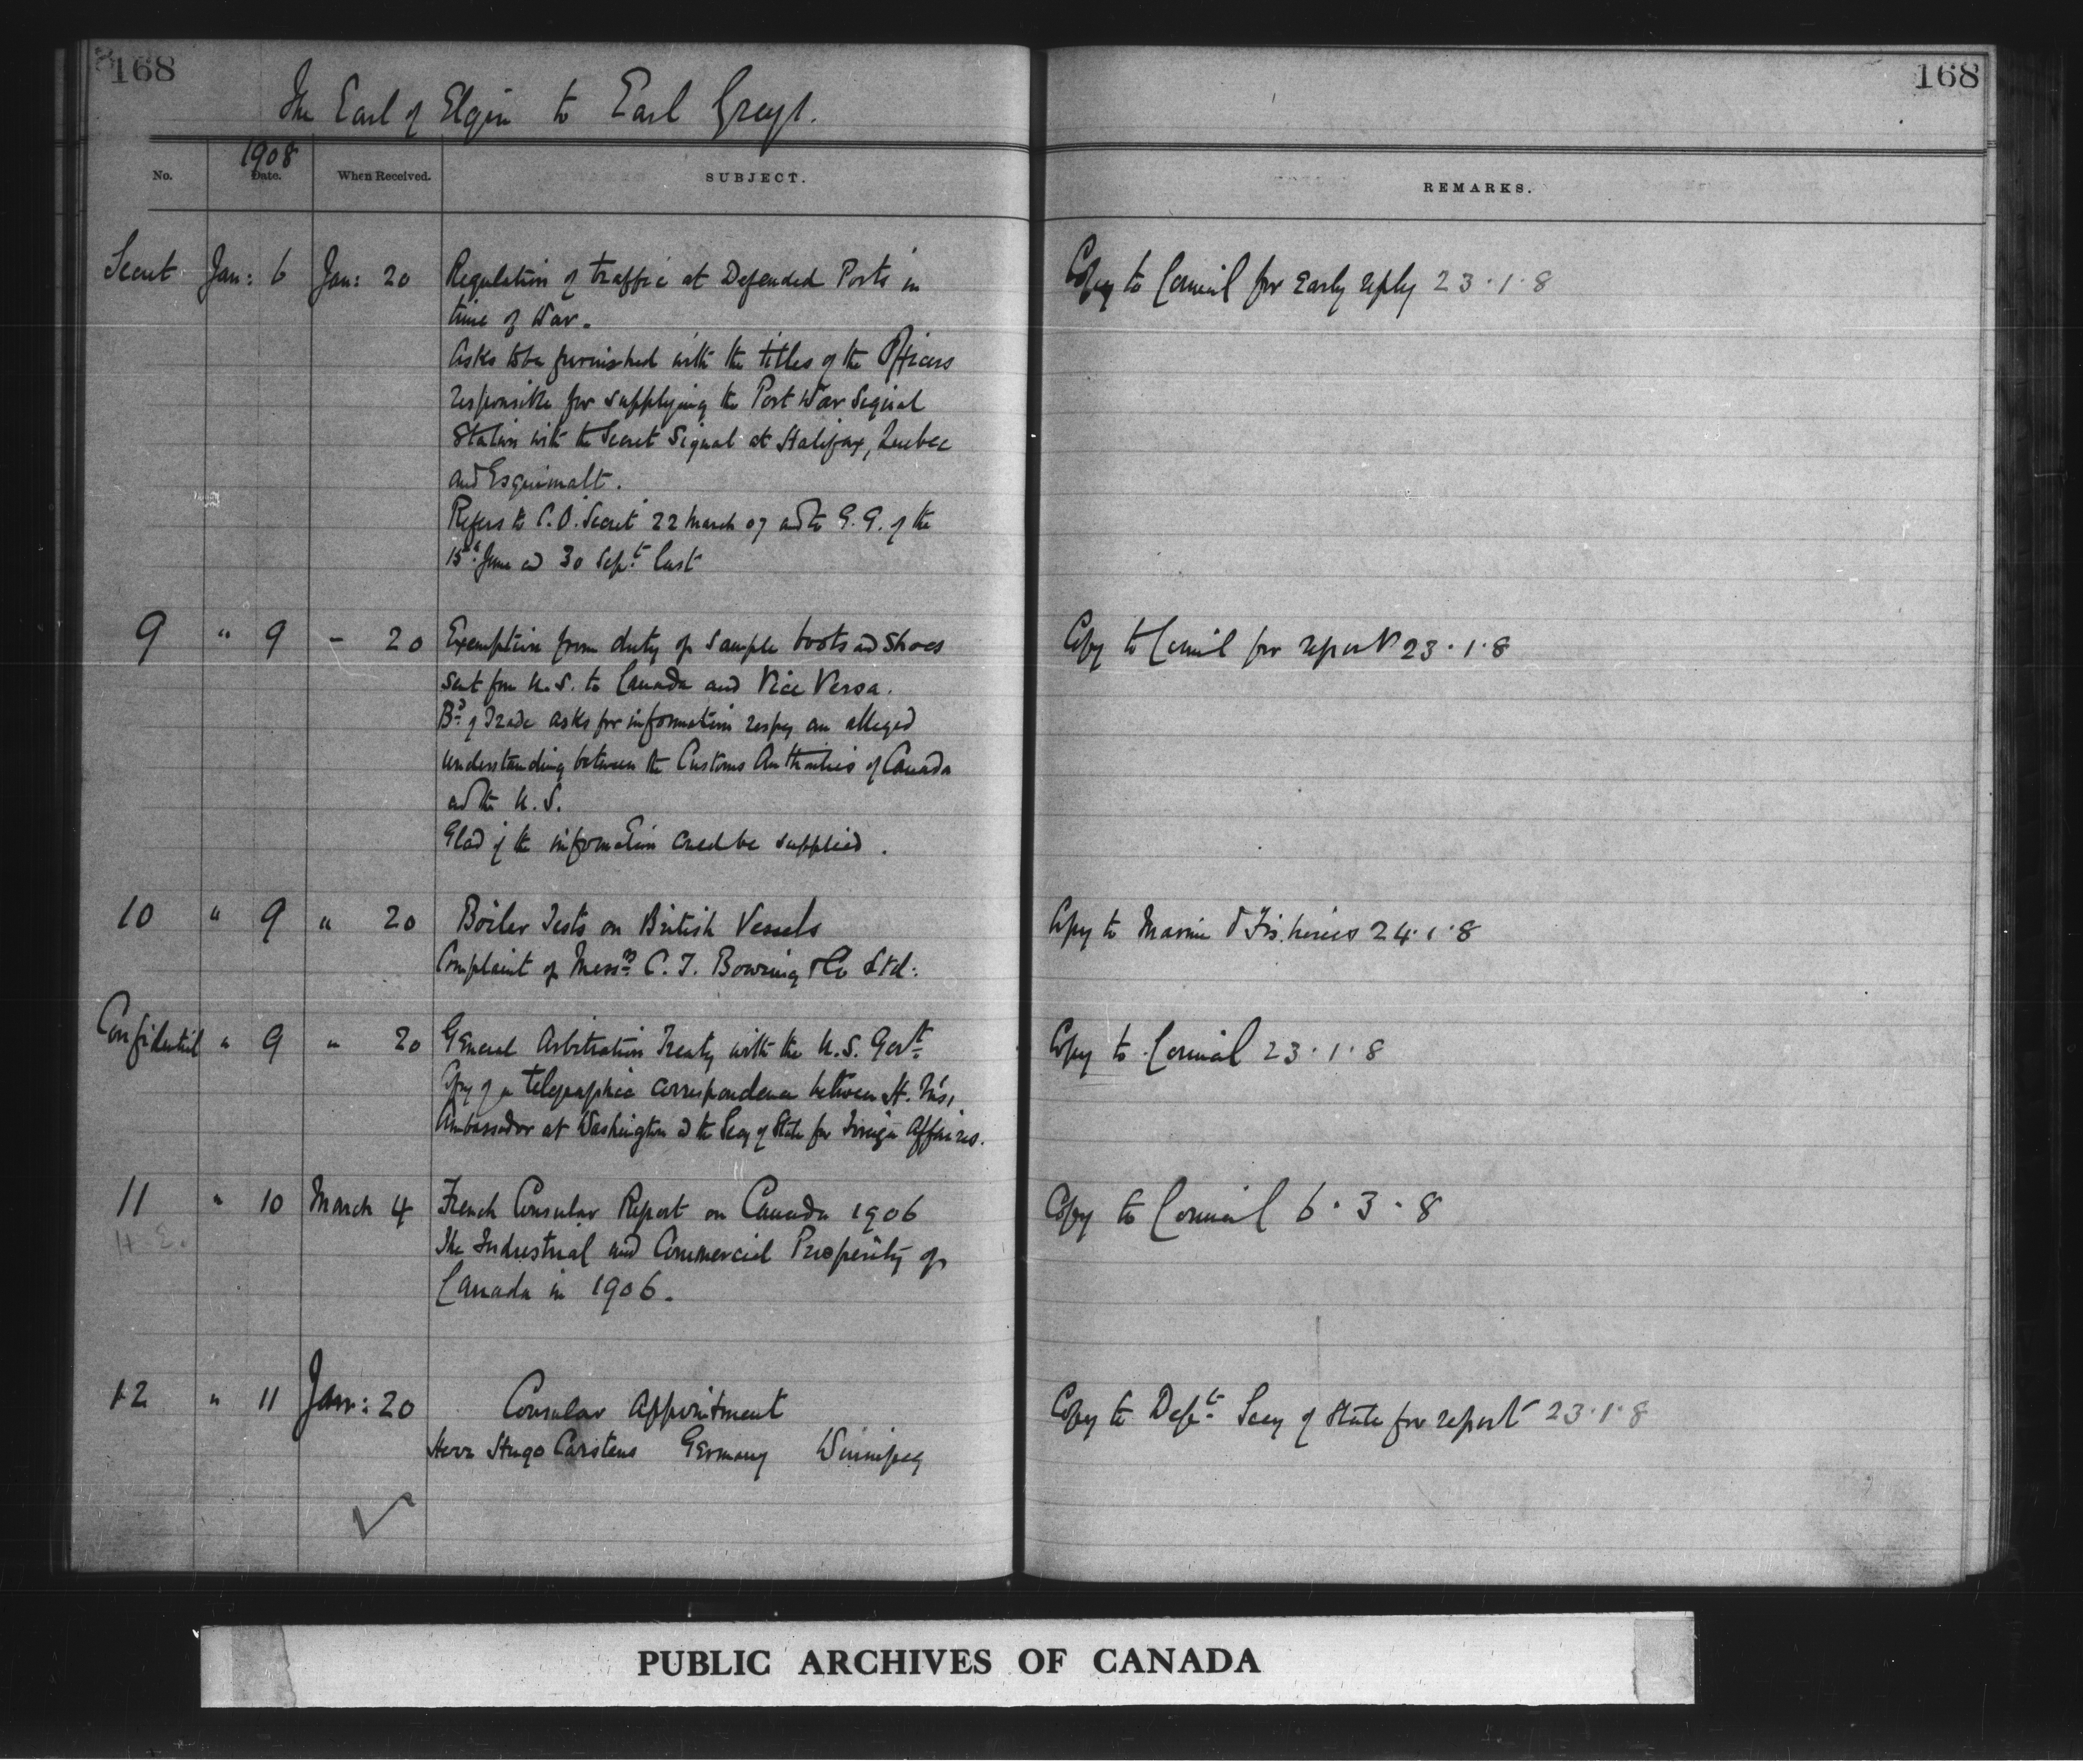 168
168
The Earl of Elgin to Earl Grey.
1908
No. Date. When Received. SUBJECT. REMARKS.
Secret Jan: 6 Jan: 20 Regulation of traffic at Defended Ports in Copy to Council for early reply 23.1.8
time of War.
Asks to be furnished with the titles of the Officers
responsible for supplying the Port War Signal
Station with the Secret Signal at Halifax, Quebec
and Esquimalt.
Refers to C.O. Secret 22 March 07 and to G.G. of the
15th June and 30 Sept. last
9 " 9 - 20 Exemption from duty of sample boots and shoes Copy to Council for report 23.1.8
sent from U.S. to Canada and Vice Versa.
Bd. of Trade asks for information respg an alleged
understanding between the Customs Authorities of Canada
and the U.S.
Glad if the information could be supplied.
10 " 9 " 20 Boiler Tests on British Vessels Copy to Marine & Fisheries 24.1.8
Complaint of Messrs C. T. Bowring & Co Ltd:
Confidential " 9 " 20 General Arbitration Treaty with the U.S. Govt. Copy to Council 23.1.8
Copy of a telegraphic correspondence between H. M's,
Ambassador at Washington & the Secy of State for Foreign Affaires.
11 " 10 March 4 French Consular Report on Canada 1906 Copy to Council 6.3.8
The Industrial and Commercial Prosperity of
Canada in 1906.
12 " 11 Jan: 20 Consular Appointment Copy to Dept. Secy of State for report 23.1.8
Herr Hugo Carstens Germany Winnipeg
PUBLIC ARCHIVES OF CANADA